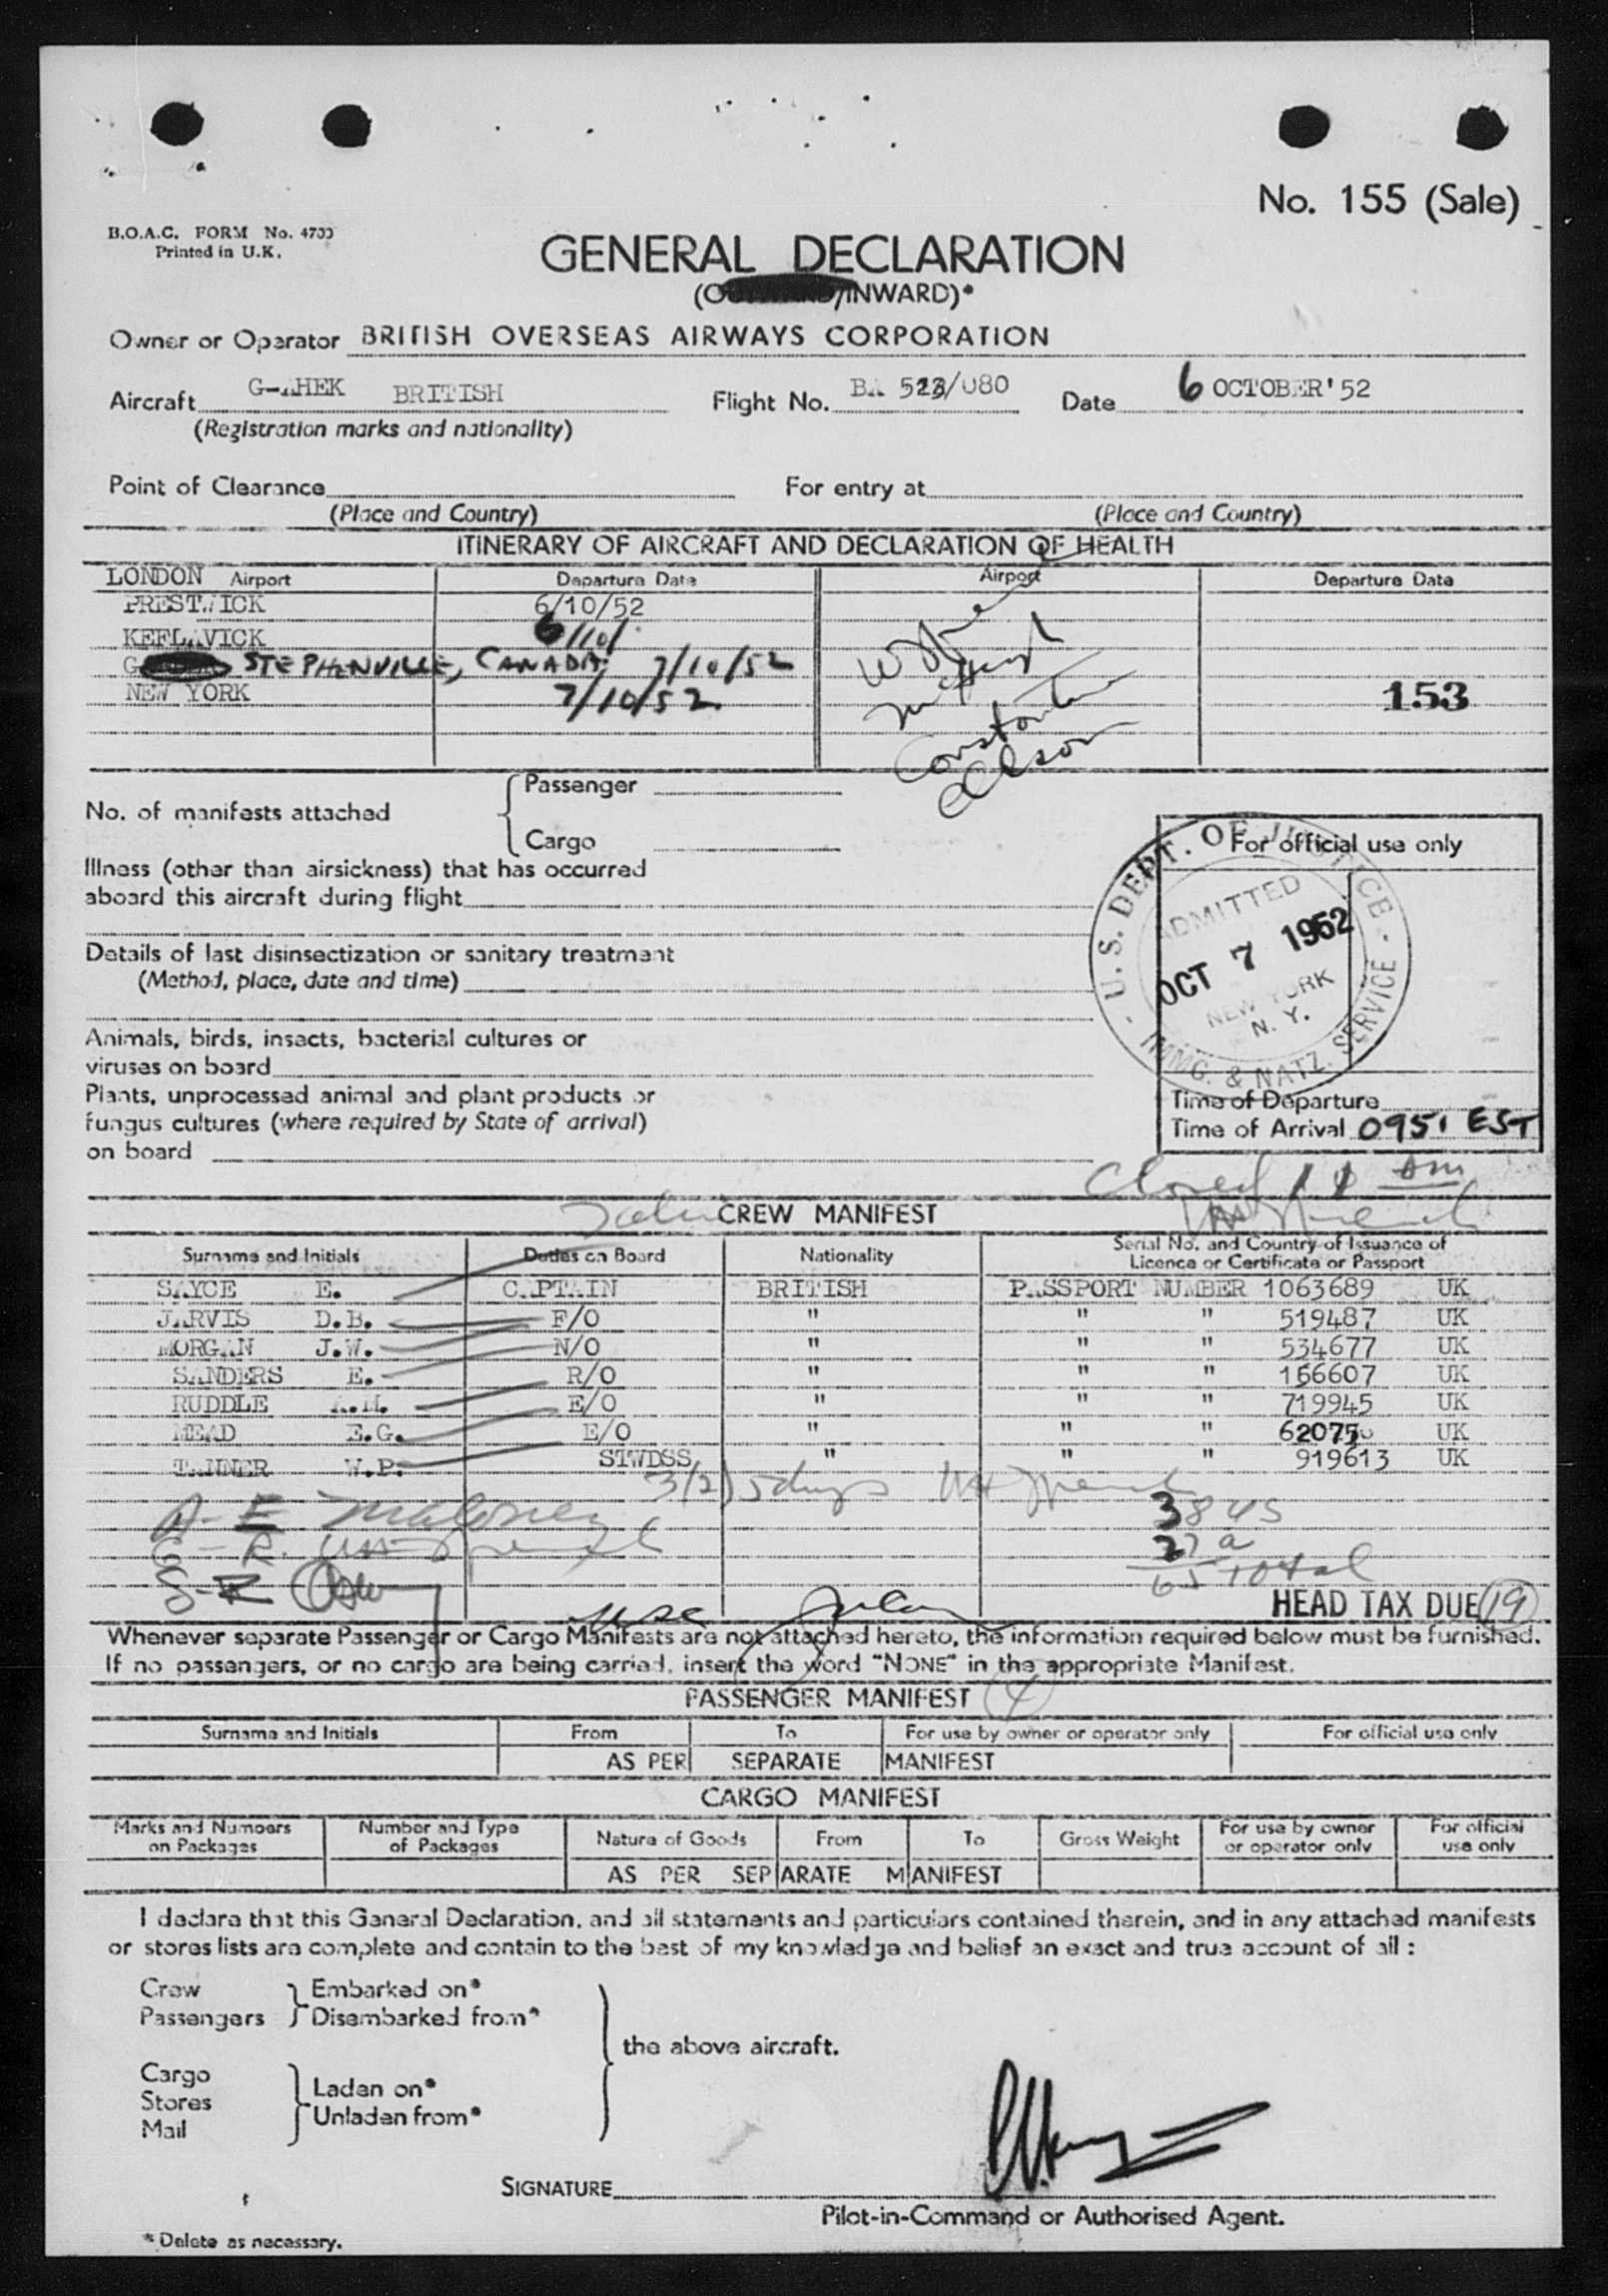 No. 155 (Sale)
B.O.A.C. FORM No. 4700
Printed in U.K.
GENERAL DECLARATION
INWARD)*
Owner or Operator BRITISH OVERSEAS AIRWAYS CORPORATION
Aircraft G-AHEK BRITISH Flight No. BA 523/080 Date 6 OCTOBER'52
(Registration marks and nationality)
Point of Clearance For entry at
(Place and Country) (Place and Country)
ITINERARY OF AIRCRAFT AND DECLARATION OF HEALTH
LONDON Airport Departure Date Airport Departure Date
PRESTWICK 6/10/52
KEFLAVICK 6/10/
STEPHENVILLE, CANADA 7/10/52
NEW YORK 7/10/52 153
Constantine
No. of manifests attached Passenger
Cargo
For official use only
Illness (other than airsickness) that has occurred
aboard this aircraft during flight
U.S. DEPT. OF JUSTICE - IMMG. & NATZ. SERVICE -
ADMITTED
OCT 7 1952
NEW YORK
N. Y.
Details of last disinsectization or sanitary treatment
(Method, place, date and time)
Animals, birds, insects, bacterial cultures or
viruses on board
Plants, unprocessed animal and plant products or
fungus cultures (where required by State of arrival)
on board
Time of Departure
Time of Arrival 0951 EST
Closed 11 am
CREW MANIFEST
Surname and Initials Duties on Board Nationality Serial No. and Country of Issuance of
Licence or Certificate or Passport
SAYCE E. CAPTAIN BRITISH PASSPORT NUMBER 1063689 UK
JARVIS D.B. F/O " " " 519487 UK
MORGAN J.W. N/O " " " 534677 UK
SANDERS E. R/O " " " 166607 UK
RUDDLE E/O " " " 719945 UK
MEAD E.G. E/O " " " 62075 UK
TANNER W.P. STWDSS " " " 919613 UK
3/2) 5 days
A-E Maloney 38 US
G-R. 27 a
S-R 65 total
HEAD TAX DUE 19
Whenever separate Passenger or Cargo Manifests are not attached hereto, the information required below must be furnished.
If no passengers, or no cargo are being carried, insert the word "NONE" in the appropriate Manifest.
PASSENGER MANIFEST
Surname and Initials From To For use by owner or operator only For official use only
AS PER SEPARATE MANIFEST
CARGO MANIFEST
Marks and Numbers on Packages Number and Type of Packages Nature of Goods From To Gross Weight For use by owner or operator only For official use only
AS PER SEPARATE MANIFEST
I declare that this General Declaration, and all statements and particulars contained therein, and in any attached manifests
or stores lists are complete and contain to the best of my knowledge and belief an exact and true account of all :
Crew Embarked on*
Passengers Disembarked from*
the above aircraft.
Cargo
Stores Laden on*
Mail Unladen from*
SIGNATURE
Pilot-in-Command or Authorised Agent.
* Delete as necessary.